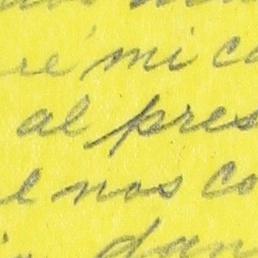 re' mi co
al pres
e nos co
dan